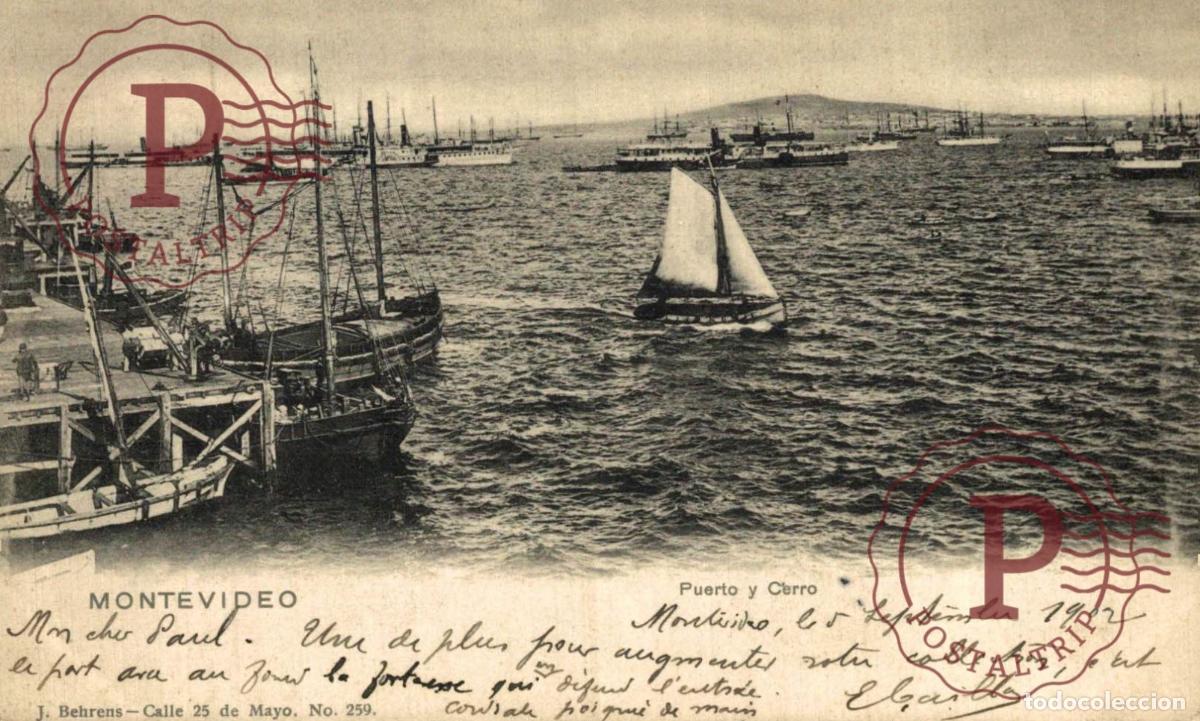 P
POSTALTRIP
MONTEVIDEO
Puerto y Cerro
Montévideo, le 5 Septembre 1902
Mon cher Paul. Une de plus pour augmenter votre c'est
le port avec au fond la forteresse qui en défend l'entrée.
cordiale poignée de main
J. Behrens — Calle 25 de Mayo, No. 259.
P
POSTALTRIP
todocoleccion